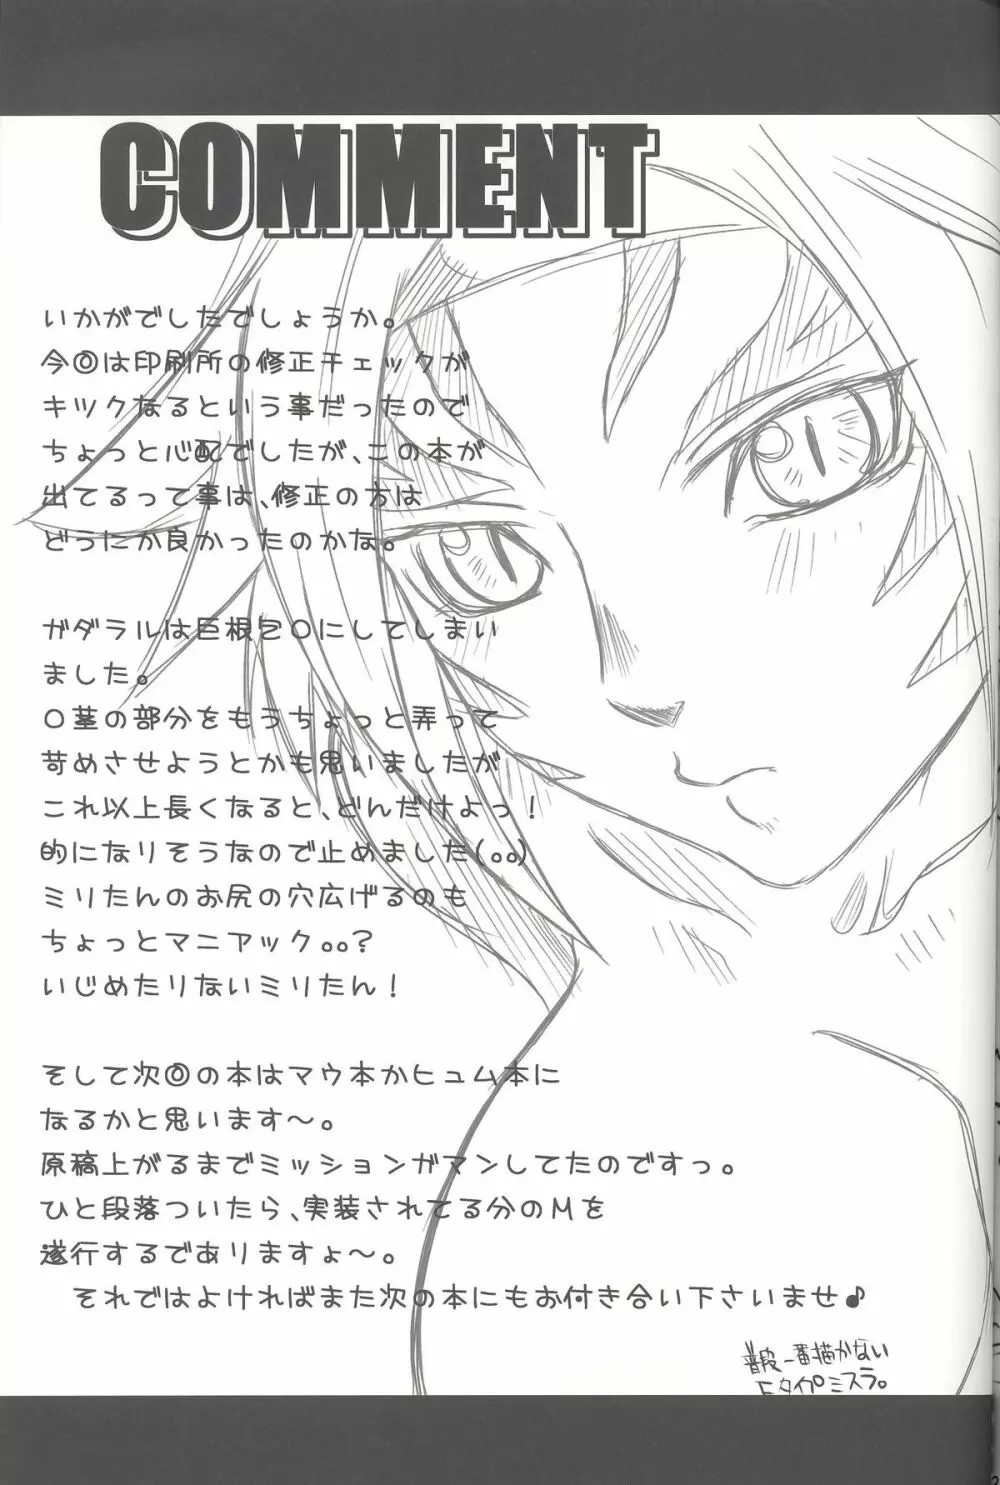 COMMENT
いかがでしたでしょうか。
今回は印刷所の修正チェックが
キツクなるという事だったので
ちょっと心配でしたが、この本が
出てるって事は、修正の方は
どうにか良かったのかな。
ガダラルは巨根包〇にしてしまい
ました。
〇茎の部分をもうちょっと弄って
苛めさせようとかも思いましたが
これ以上長くなると、どんだけよっ!
的になりそうなので止めました(。。)
ミリたんのお尻の穴広げるのも
ちょっとマニアック。。?
いじめたりないミリたん!
そして次回の本はマウ本かヒュム本に
なるかと思います～。
原稿上がるまでミッションガマンしてたのですっ。
ひと段落ついたら、実装されてる分のMを
遂行するでありますょ～。
それではよければまた次の本にもお付き合い下さいませ♪
普段一番描かない
Fタイプミスラ。